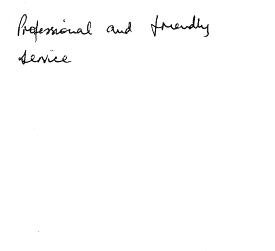 Professional and friendly
service